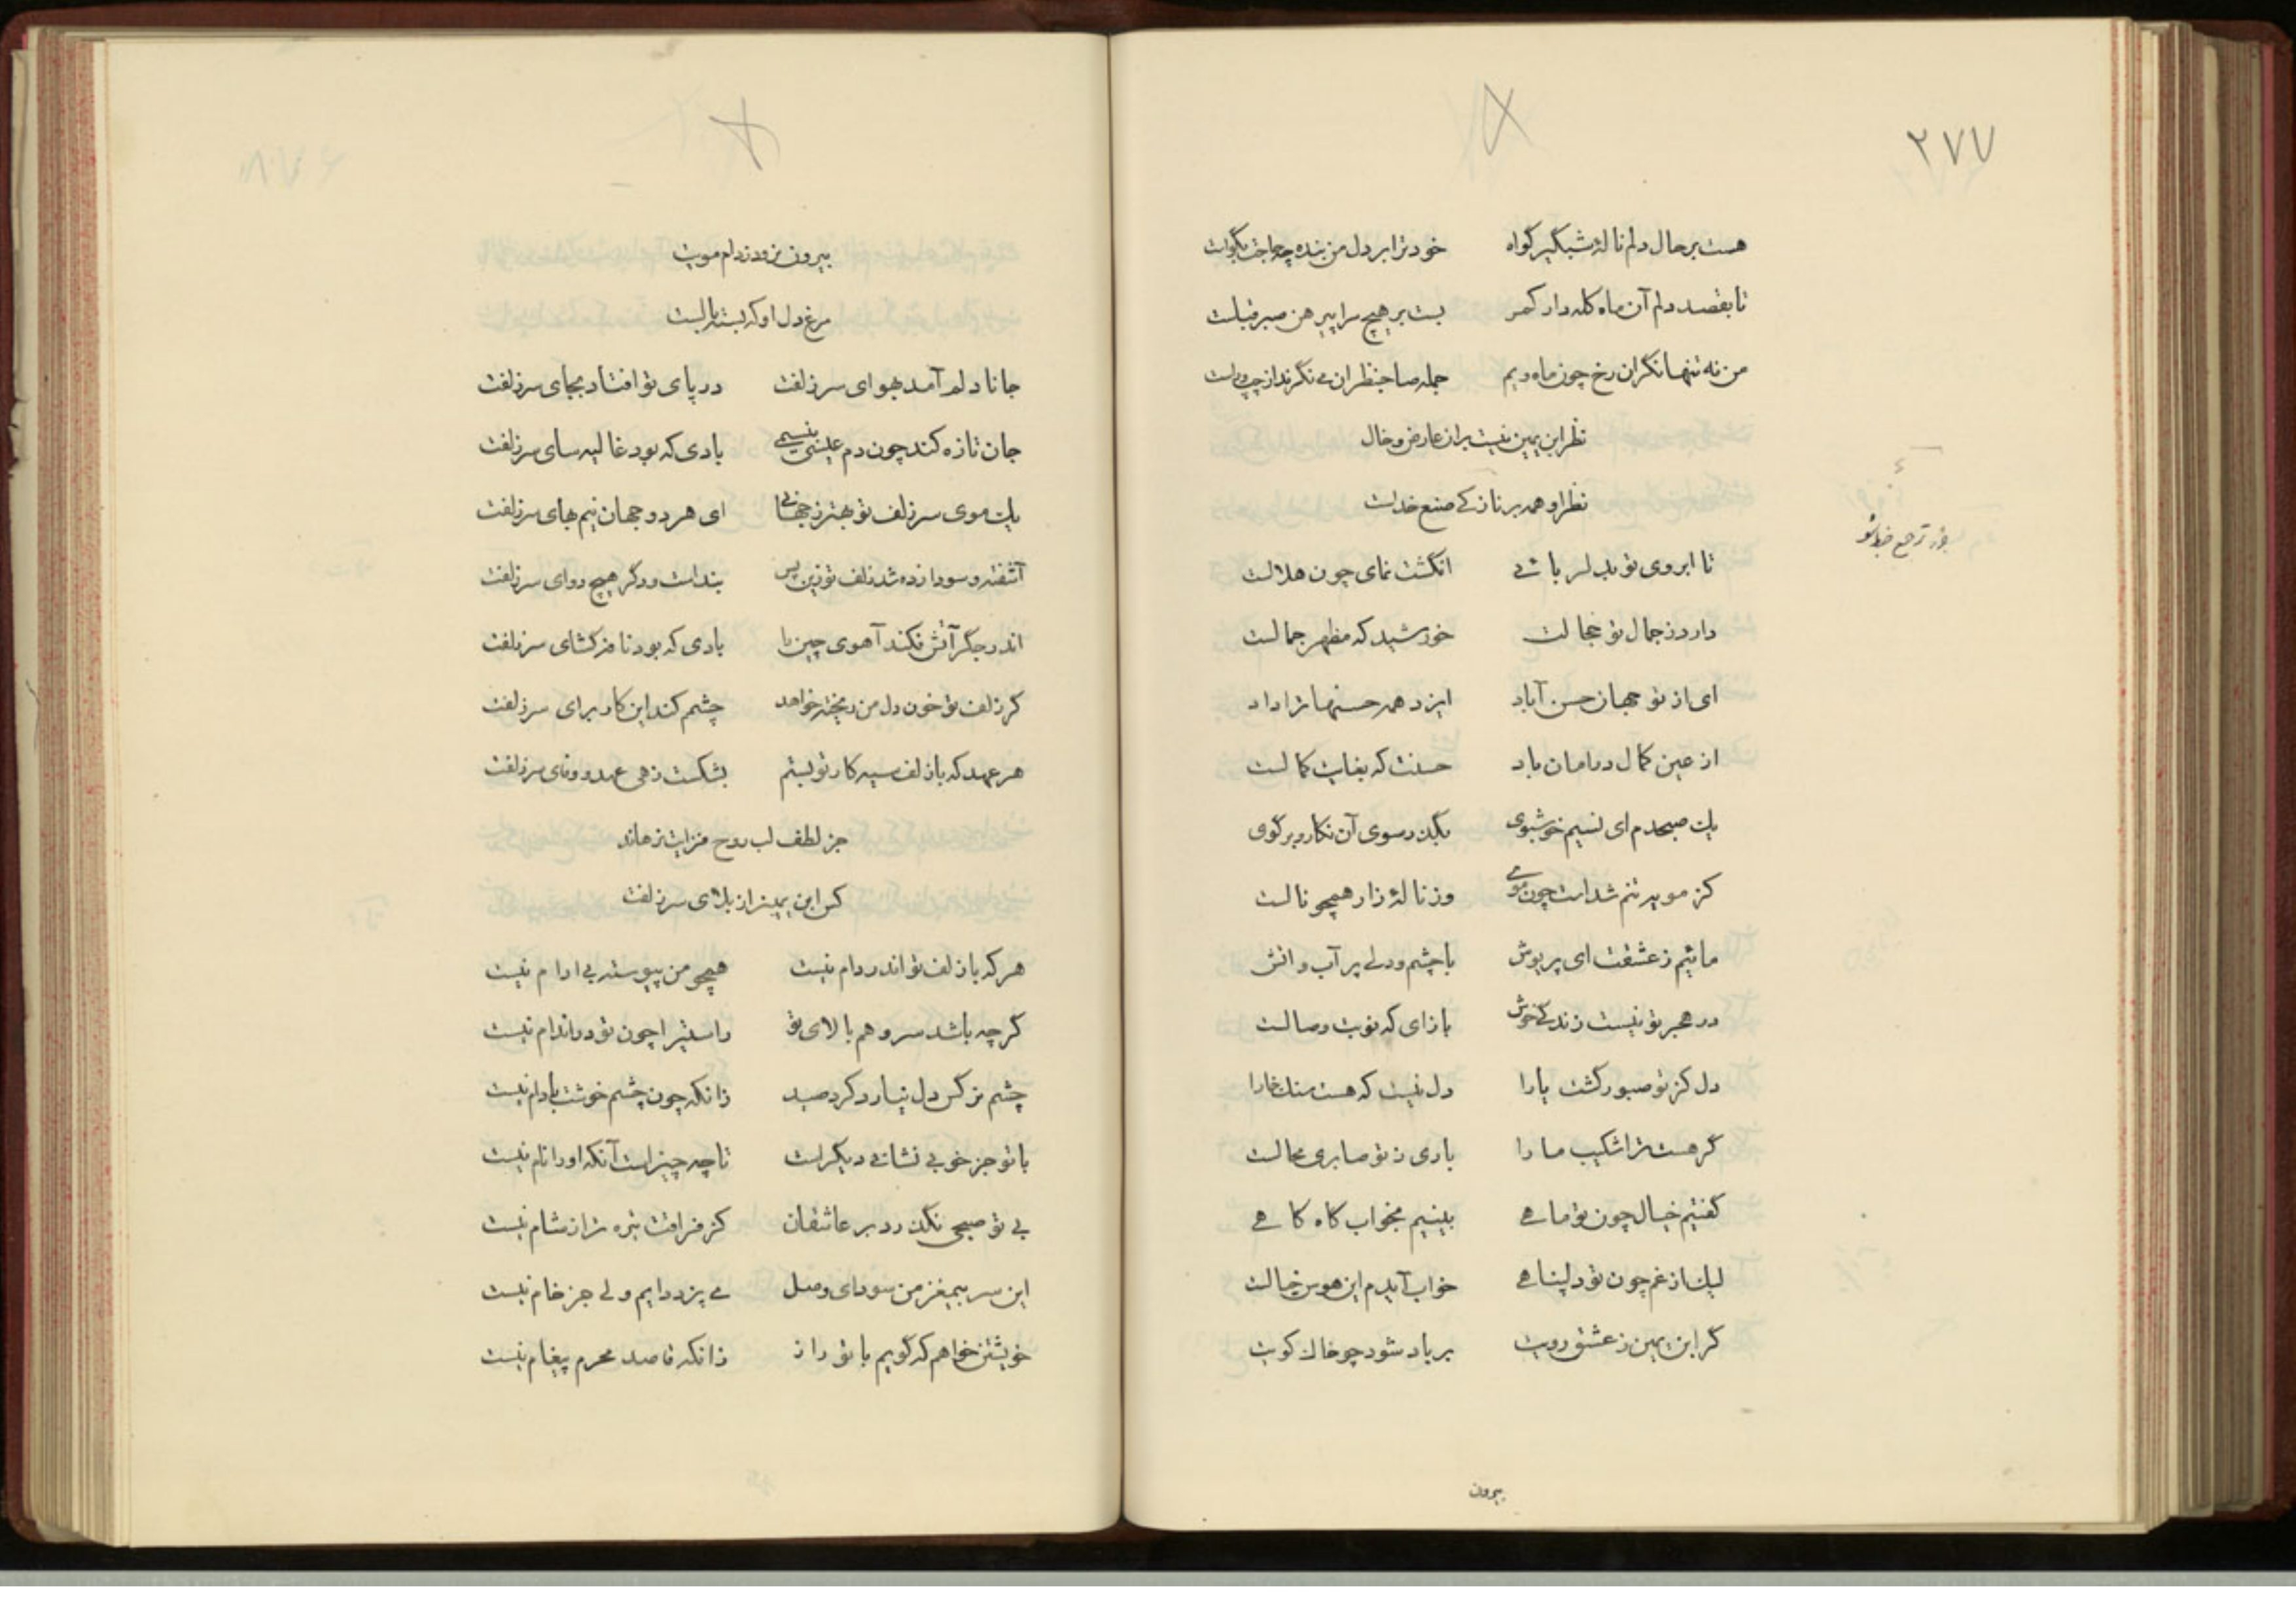 ۲۷۷
هست بر حال دلم نالهٔ شبگیر گواه خود ترا بر دل من بنده چه حاجت بگواست
تا بقصد دلم آن ماه کله دار کمر بست بر هیچ مرا پیرهن صبر قباست
من نه تنها نگران رخ چون ماه ویم جمله صاحبنظران می نگرند از چپ و راست
نظر ابن یمین نیست بر ان عارض و خال
نظر او همه بر نازکی صنع خداست
تا ابروی تو بدلربائی انگشت نمای چون هلالست
دارد ز جمال تو خجالت خورشید که مظهر جمالست
ای از تو جهان حسن آباد ایزد همه حسنها ترا داد
از عین کمال در امان باد حسنت که بغایت کمالست
یک صبحدم ای نسیم خوشبوی بگذر سوی آن نگار و برگوی
کز مویه تنم شدست چون موی وز نالهٔ زار همچو نالست
مائیم ز عشقت ای پریوش با چشم و دلی پر آب و اتش
در هجر تو نیست زندگی خوش بازای که نوبت وصالست
دل کز تو صبور گشت یارا دل نیست که هست سنک خارا
گر هست ترا شکیب ما را باری ز تو صابری محالست
گفتیم خیال چون تو ماهی بینیم بخواب کاه کاهی
لیک از غم چون تو دلپناهی خواب آیدم این هوس خیالست
گر ابن یمین ز عشق رویت بر باد شود چو خاک کویت
بیرون
بیرون نرود ز دام مویت
مرغ دل او که بسته بالست
جانا دلم آمد بهوای سر زلفت در پای تو افتاد بجای سر زلفت
جان تازه کند چون دم عیسی بنسیمی بادی که بود غالیه سای سر زلفت
یک موی سر زلف تو بهتر ز جهانی ای هر دو جهان نیم بهای سر زلفت
آشفته و سودا زده شد زلف تو زین پس بنداست و دگر هیچ دوای سر زلفت
اندر جگر آتش فکند آهوی چین را بادی که بود نافه گشای سر زلفت
گر زلف تو خون دل من ریخته خواهد چشم کند این کار برای سر زلفت
هر عهد که با زلف سیه کار تو بستم بشکست زهی عهد و وفای سر زلفت
جز لطف لب روح فزایت نرهاند
کس ابن یمین را ز بلای سر زلفت
هر که با زلف تو اندر دام نیست همچو من پیوسته بی ارام نیست
گر چه باشد سرو هم بالای تو راستیرا چون تو در اندام نیست
چشم نرگس دل نیارد کرد صید زانکه چون چشم خوشت بادام نیست
با تو جز خوبی نشانی دیگرست تا چه چیزاست آنکه اورا نام نیست
بی تو صبحی نگذرد بر عاشقان کز فراقت تیره تر از شام نیست
این سر بیمغز من سودای وصل می پزد دایم ولی جز خام نیست
خویشتن خواهم که گویم با تو راز زانکه قاصد محرم پیغام نیست